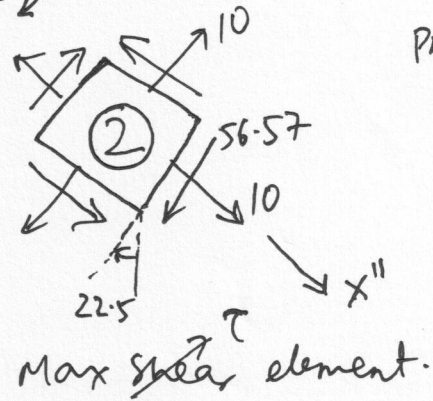 10
Pr
2
56.57
10
22.5
x"
τ
Max shear element.